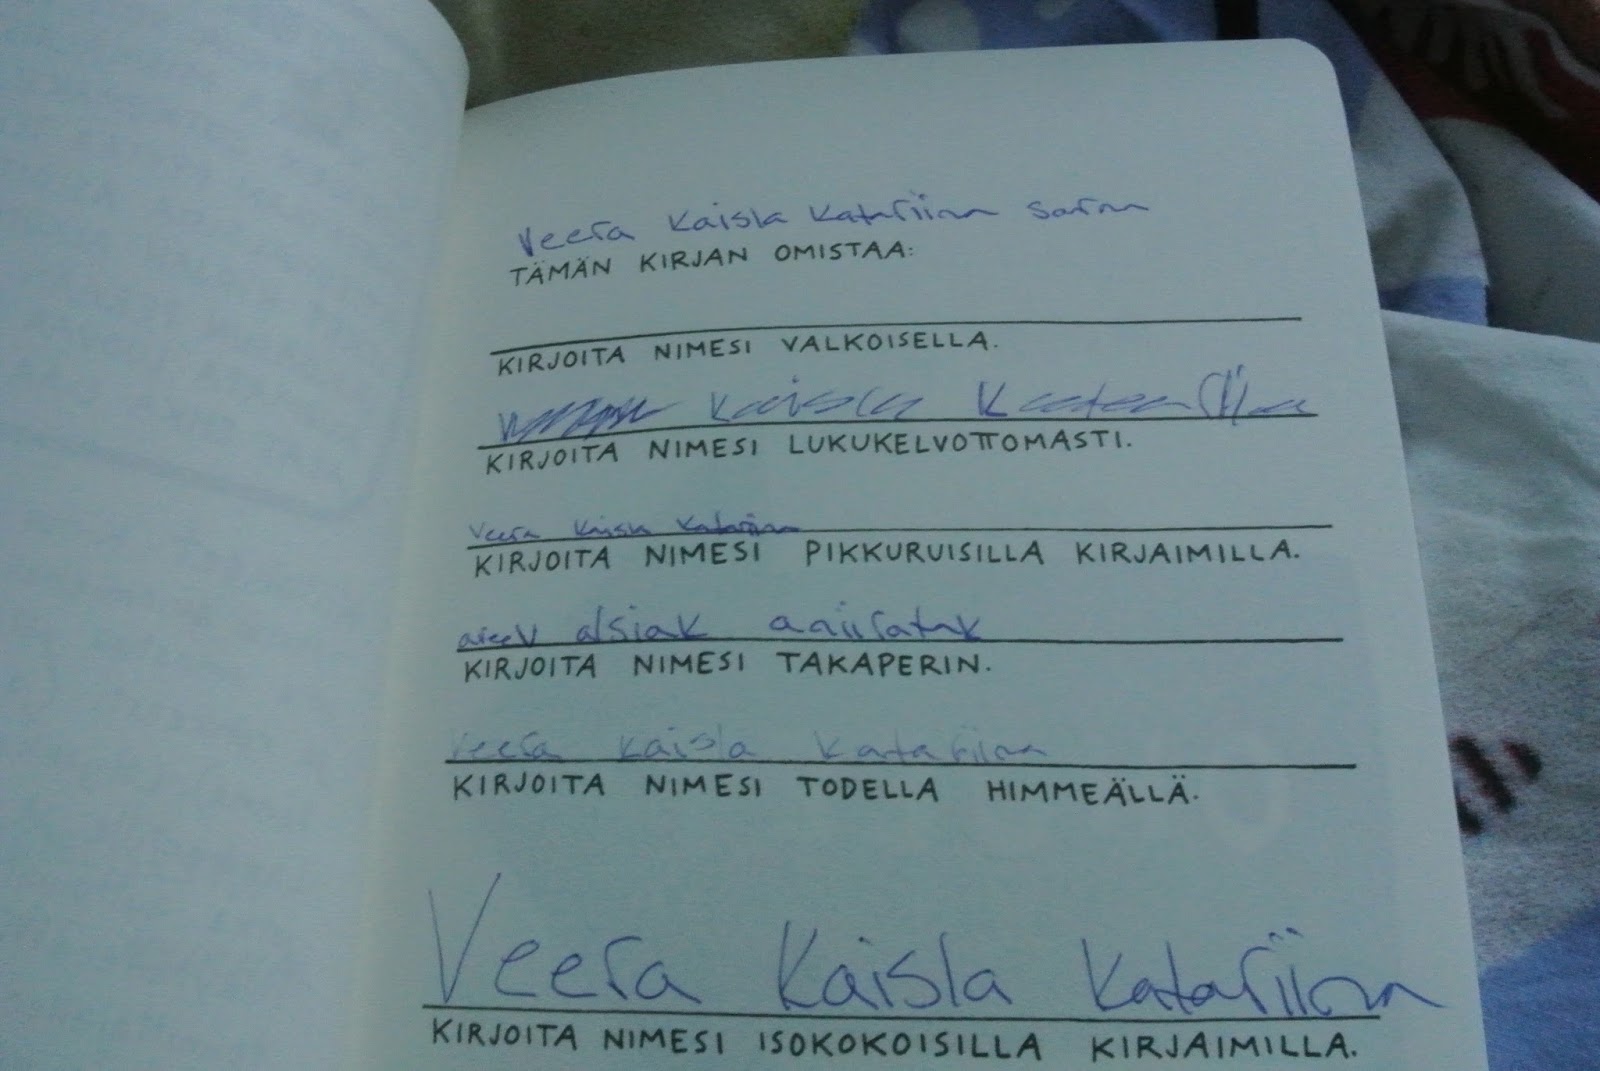 Veera Kaisla Katariina
TÄMÄN KIRJAN OMISTAA:
KIRJOITA NIMESI VALKOISELLA.
Kaisla Katariina
KIRJOITA NIMESI LUKUKELVOTTOMASTI.
Veera Kaisla Katariina
KIRJOITA NIMESI PIKKURUISILLA KIRJAIMILLA.
areeV alsiak aniiratak
KIRJOITA NIMESI TAKAPERIN.
Veera Kaisla Katariina
KIRJOITA NIMESI TODELLA HIMMEÄLLÄ.
Veera Kaisla Katariina
KIRJOITA NIMESI ISOKOKOISILLA KIRJAIMILLA.